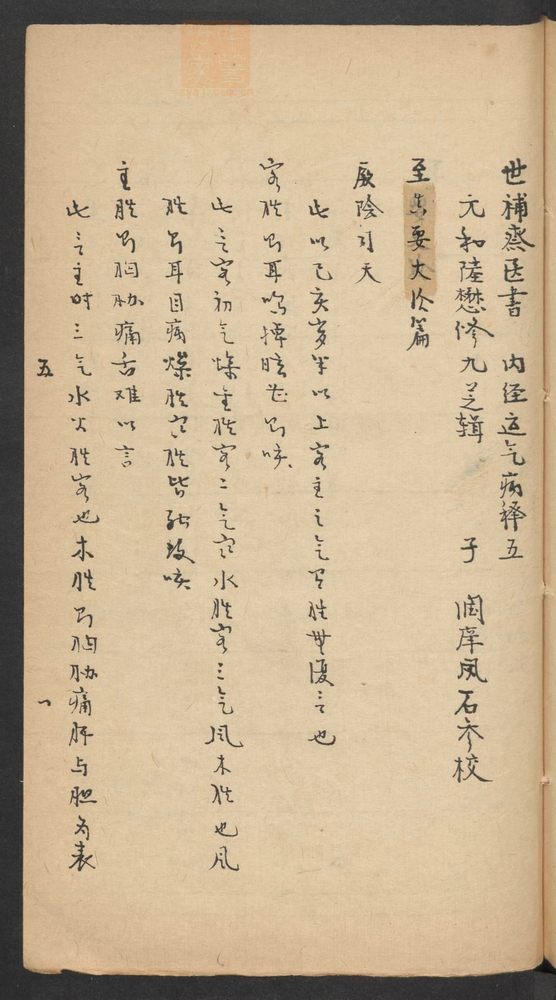 世補齋医書　内经运气病释五
元和陸懋修九芝辑　子　润庠凤石参校
至真要大论篇
厥阴司天
此以巳亥岁半以上客主之气有胜無復言也
客胜则耳鸣掉眩甚则咳
此言客初气燥金胜客二气寒水胜客三气风木胜也风
胜则耳目病燥胜寒胜皆能致咳
主胜则胸胁痛舌难以言
此言主时三气水火胜客也木胜则胸胁痛肝与胆为表
五　一